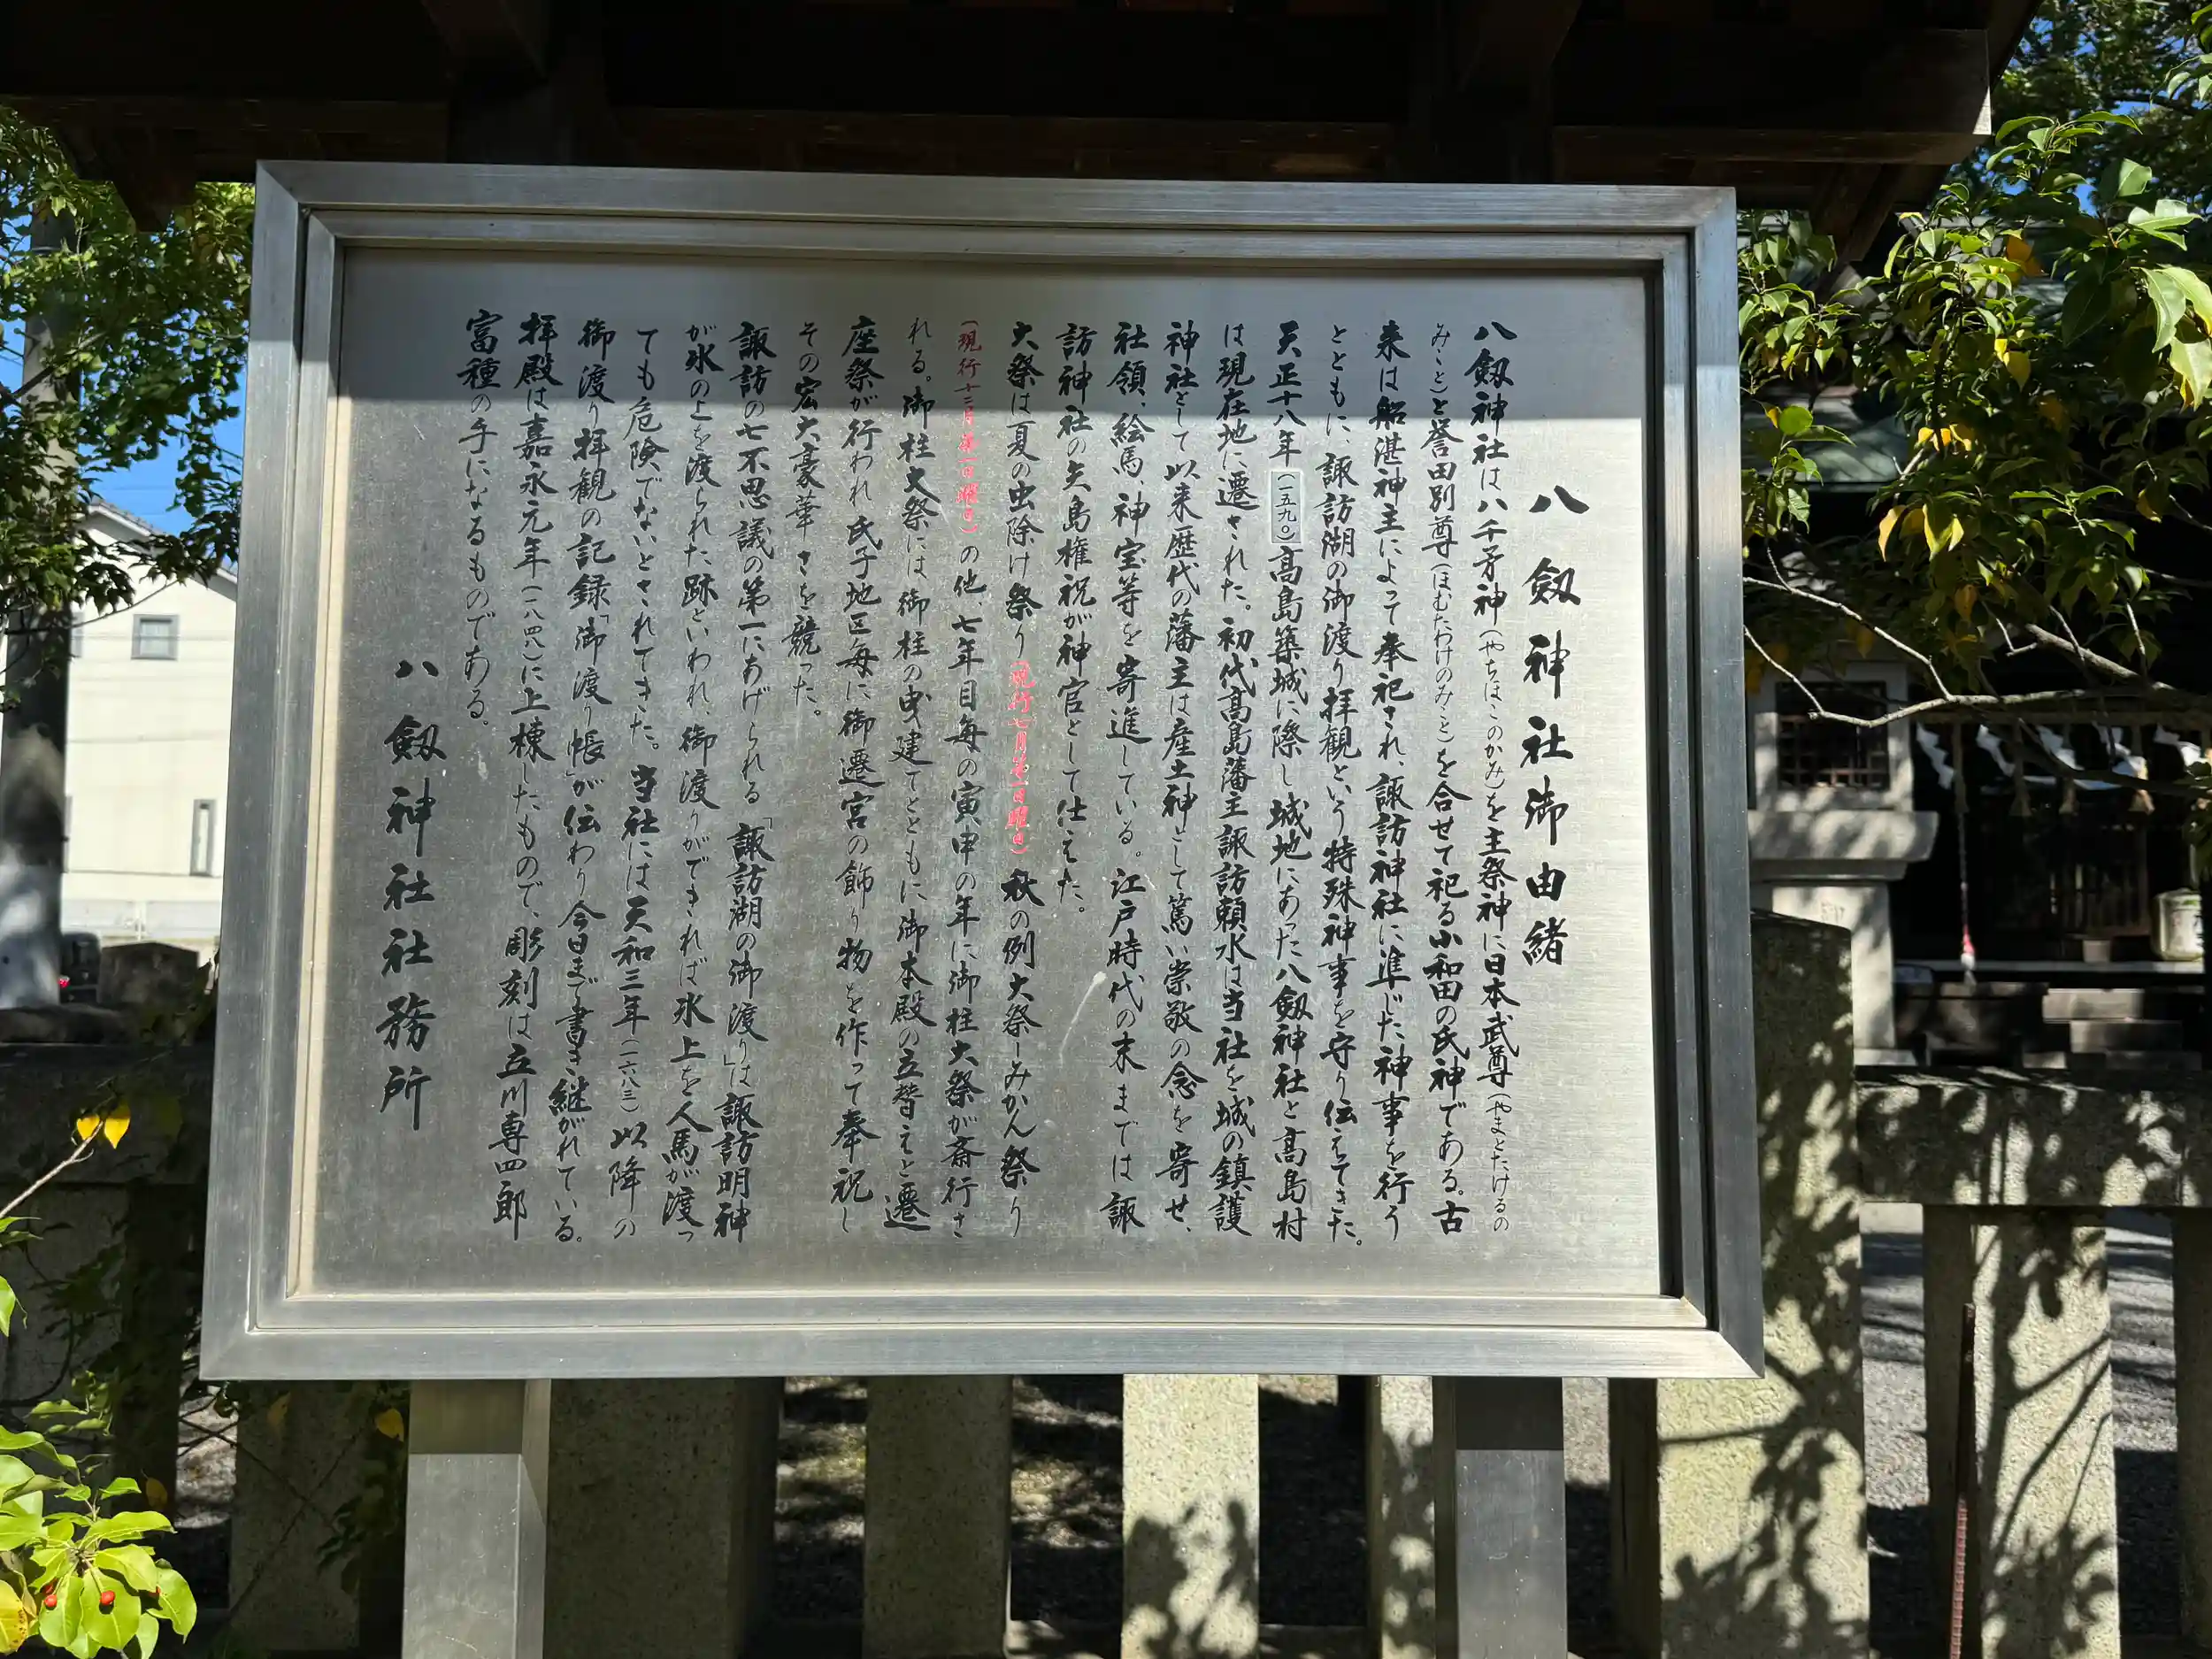 八劔神社御由緒
八劔神社は八千矛神(やちほこのかみ)を主祭神に日本武尊(やまとたけるの
みこと)と誉田別尊(ほむたわけのみこと)を合せて祀る小和田の氏神である。古
来は船湛神主によって奉祀され、諏訪神社に準じた神事を行う
とともに、諏訪湖の御渡り拝観という特殊神事を守り伝えてきた。
天正十八年(一五九〇)高島築城に際し城地にあった八劔神社と高島村
は現在地に遷された。初代高島藩主諏訪頼水は当社を城の鎮護
神社として以来歴代の藩主は産土神として篤い崇敬の念を寄せ、
社領、絵馬、神宝等を寄進している。江戸時代の末までは諏
訪神社の矢島権祝が神官として仕えた。
大祭は夏の虫除け祭り(現行七月第一日曜日)秋の例大祭–みかん祭り
(現行十二月第一日曜日)の他、七年目毎の寅申の年に御柱大祭が斎行さ
れる。御柱大祭には御柱の曳建てとともに御本殿の立替えと遷
座祭が行われ氏子地区毎に御遷宮の飾り物を作って奉祝し
その宏大豪華さを競った。
諏訪の七不思議の第一にあげられる「諏訪湖の御渡り」は諏訪明神
が氷の上を渡られた跡といわれ、御渡りができれば氷上を人馬が渡っ
ても危険でないとされてきた。当社には天和三年(一六八三)以降の
御渡り拝観の記録「御渡り帳」が伝わり今日まで書き継がれている。
拝殿は嘉永元年(一八四八)に上棟したもので、彫刻は立川専四郎
富種の手になるものである。
八劔神社社務所